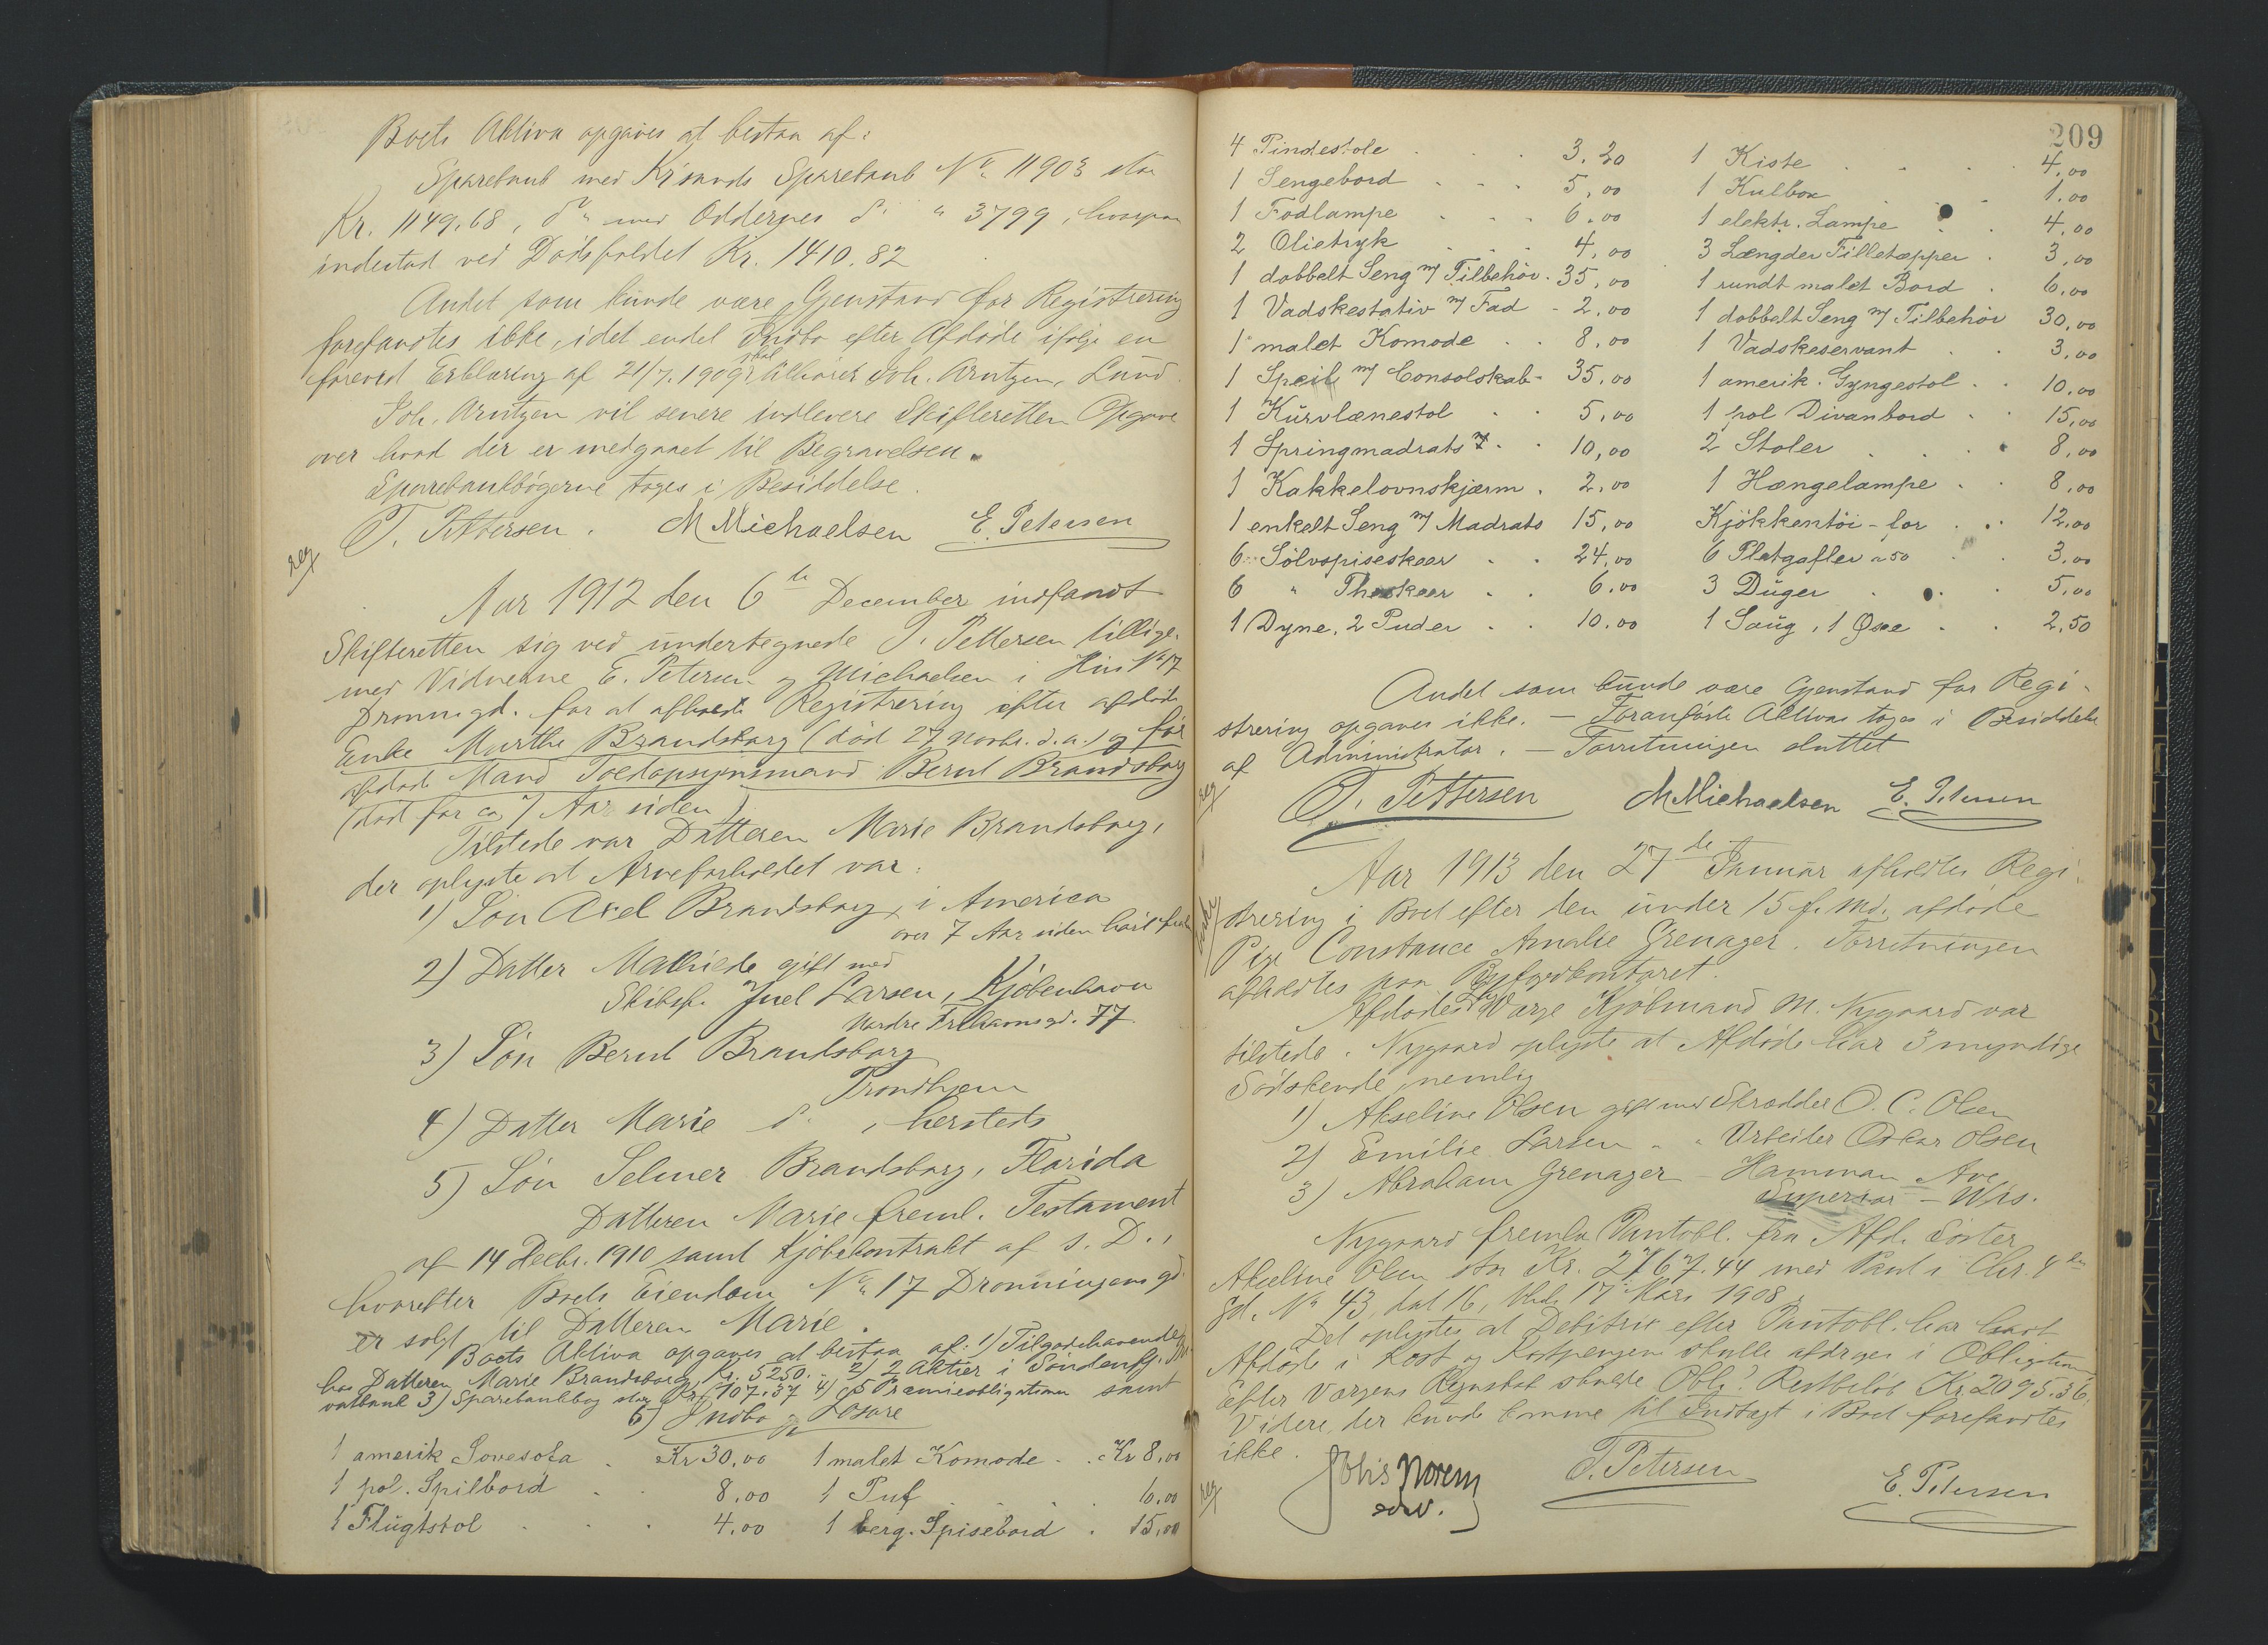 Boets Aktiva opgaves at bestaa af:
Sparebank med Krsands Sparebank No 11903 stor
Kr. 1149.68, do med Oddernes do " 3799, hvorpaa
indestod ved Dødsfaldet Kr. 1410.82
Andet som kunde være Gjenstand for Registrering
forefandtes ikke, idet endel Indbo efter Afdøde ifølge en
forevist Erklæring af 21/7. 1909 skal tilhøre Joh. Arntzen, Lund.
Joh. Arntzen vil senere indlevere Skifteretten Opgave
over hvad der er medgaaet til Begravelsen.
Sparebankbøgerne toges i Besiddelse.
T. Pettersen. M Michaelsen E. Petersen
reg
Aar 1912 den 6te December indfandt
Skifteretten sig ved undertegnede T. Pettersen tillige
med Vidnerne E. Petersen og Michaelsen i Hus No 17
Dronnigd. for at afholde Registrering efter afdøde
Enke Marthe Brandsborg (død 27 Novbr. d.a.) og før
afdøde Mand Toldopsynsmand Bernt Brandsborg
(død for ca 7 Aar siden)
Tilstede var Datteren Marie Brandsborg,
der oplyste at Arveforholdet var:
1) Søn Axel Brandsborg, i America
over 7 Aar siden hørt fra
2) Datter Mathilde gift med
Skibsf. Juel Larsen, Kjøbenhavn
Nordre Frihavnsgd. 77.
3) Søn Bernt Brandsborg
Trondhjem
4) Datter Marie do, hersteds
5) Søn Selmer Brandsborg, Florida
Datteren Marie freml. Testament
af 14 Decbr. 1910 samt Kjøbekontrakt af s. D.,
hvorefter Boets Eiendom No 17 Dronningensgd.
er solgt til Datteren Marie.
Boets Aktiva opgaves at bestaa af: 1) Tilgodehavende
hos Datteren Marie Brandsborg Kr. 5250.- 2) 2 Aktier i Søndenfj.
vatbank 3) Sparebankbog stor Kr. 107.37 4) 5 Præmieobligationer samt
5) Indbo og Løsøre
1 amerik Sovesofa . Kr 30,00 1 malet Komode . . Kr 8,00
1 pol. Spilbord . . 8,00 1 Puf . . . 6,00
1 Flugtstol . . . 4,00 1 berg. Spisebord . 15,00
209
4 Pindestole . . . 3,20 1 Kiste . . . 4,00
1 Sengebord . . . 5,00 1 Kulbox . . . 1,00
1 Fodlampe . . . 6,00 1 elektr. Lampe . . 4,00
2 Olietryk . . . 4,00 3 Længder Filletæpper . 3,00
1 dobbelt Seng m/ Tilbehör . 35,00 1 rundt malet Bord . 6,00
1 Vadskestativ m/ Fad - 2,00 1 dobbelt Seng m/ Tilbehör 30,00
1 malet Komode . . 8,00 1 Vadskeservant . . 3,00
1 Speil m/ Consolskab - 35,00 1 amerik. Gyngestol . . 10,00
1 Kurvlænestol . . 5,00 1 pol Divanbord . . 15,00
1 Springmadrats . . 10,00 2 Stoler . . . 8,00
1 Kakkelovnskjærm . 2,00 1 Hængelampe . . 8,00
1 enkelt Seng m/ Madrats 15,00 Kjökkentöi - for . . 12,00
6 Sölvspiseskeer . . 24,00 6 Platgafler a 50 . . 3,00
6 " Theskeer . . 6,00 3 Duger . . . 5,00
1 Dyne, 2 Puder . . 10,00 1 Saug, 1 Øxe . . 2,50
Andet som kunde være Gjenstand for Regi-
strering opgaves ikke. - Foranførte Aktiva toges i Besiddelse
af Administrator. - Forretningen sluttet
reg
T. Pettersen M Michaelsen E. Petersen
Aar 1913 den 27de Januar afholdtes Regi-
strering i Boet efter den under 15 f. Md. afdøde
Pige Constance Amalie Grenager. Forretningen
afholdtes paa Byfogedkontoret.
Afdødes Værge Kjøbmand M. Nygaard var
tilstede. Nygaard oplyste at Afdøde har 3 myndige
Sødskende, nemlig
1) Akseline Olsen gift med Skrædder O. C. Olsen
2) Emilie Larsen " " Arbeider Oskar Olsen
3) Abraham Grenager - Hamman Ave
Superior - Wis.
Nygaard freml. Pantobl. fra Afd. Søster
Akseline Olsen stor Kr. 2767.44 med Pant i Chr. 4des
Gd. No 43, dat 16, thl. 17 Mars 1908.
Det oplystes, at Debitrix efter Pantobl. har havt
Afdøde i Kost og Kostpengene skulle afdrages i Obligationen
Efter Værgens Regnskab skulde Obl. Restbeløb Kr. 2095.36.
Videre der kunde komme til Indtægt i Boet forefandtes
ikke.
reg
Johs Norem
sdv.
T. Petersen
E. Petersen